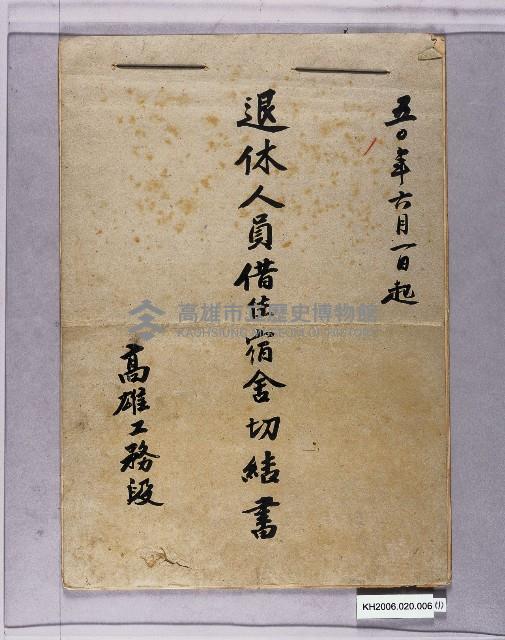 五〇年六月一日起
退休人員借住宿舍切結書
高雄工務段
高雄市立歷史博物館
KAOHSIUNG MUSEUM OF HISTORY
KH2006.020.006 (1)